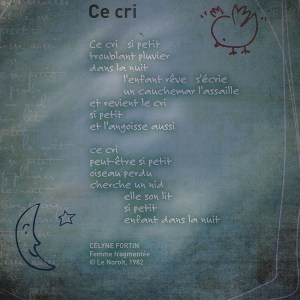 Ce cri
Ce cri si petit
troublant pluvier
dans la nuit
l'enfant rêve s'écrie
un cauchemar l'assaille
et revient le cri
si petit
et l'angoisse aussi
ce cri
peut-être si petit
oiseau perdu
cherche un nid
elle son lit
si petit
enfant dans la nuit
CÉLYNE FORTIN
Femme fragmentée
© Le Noroît, 1982